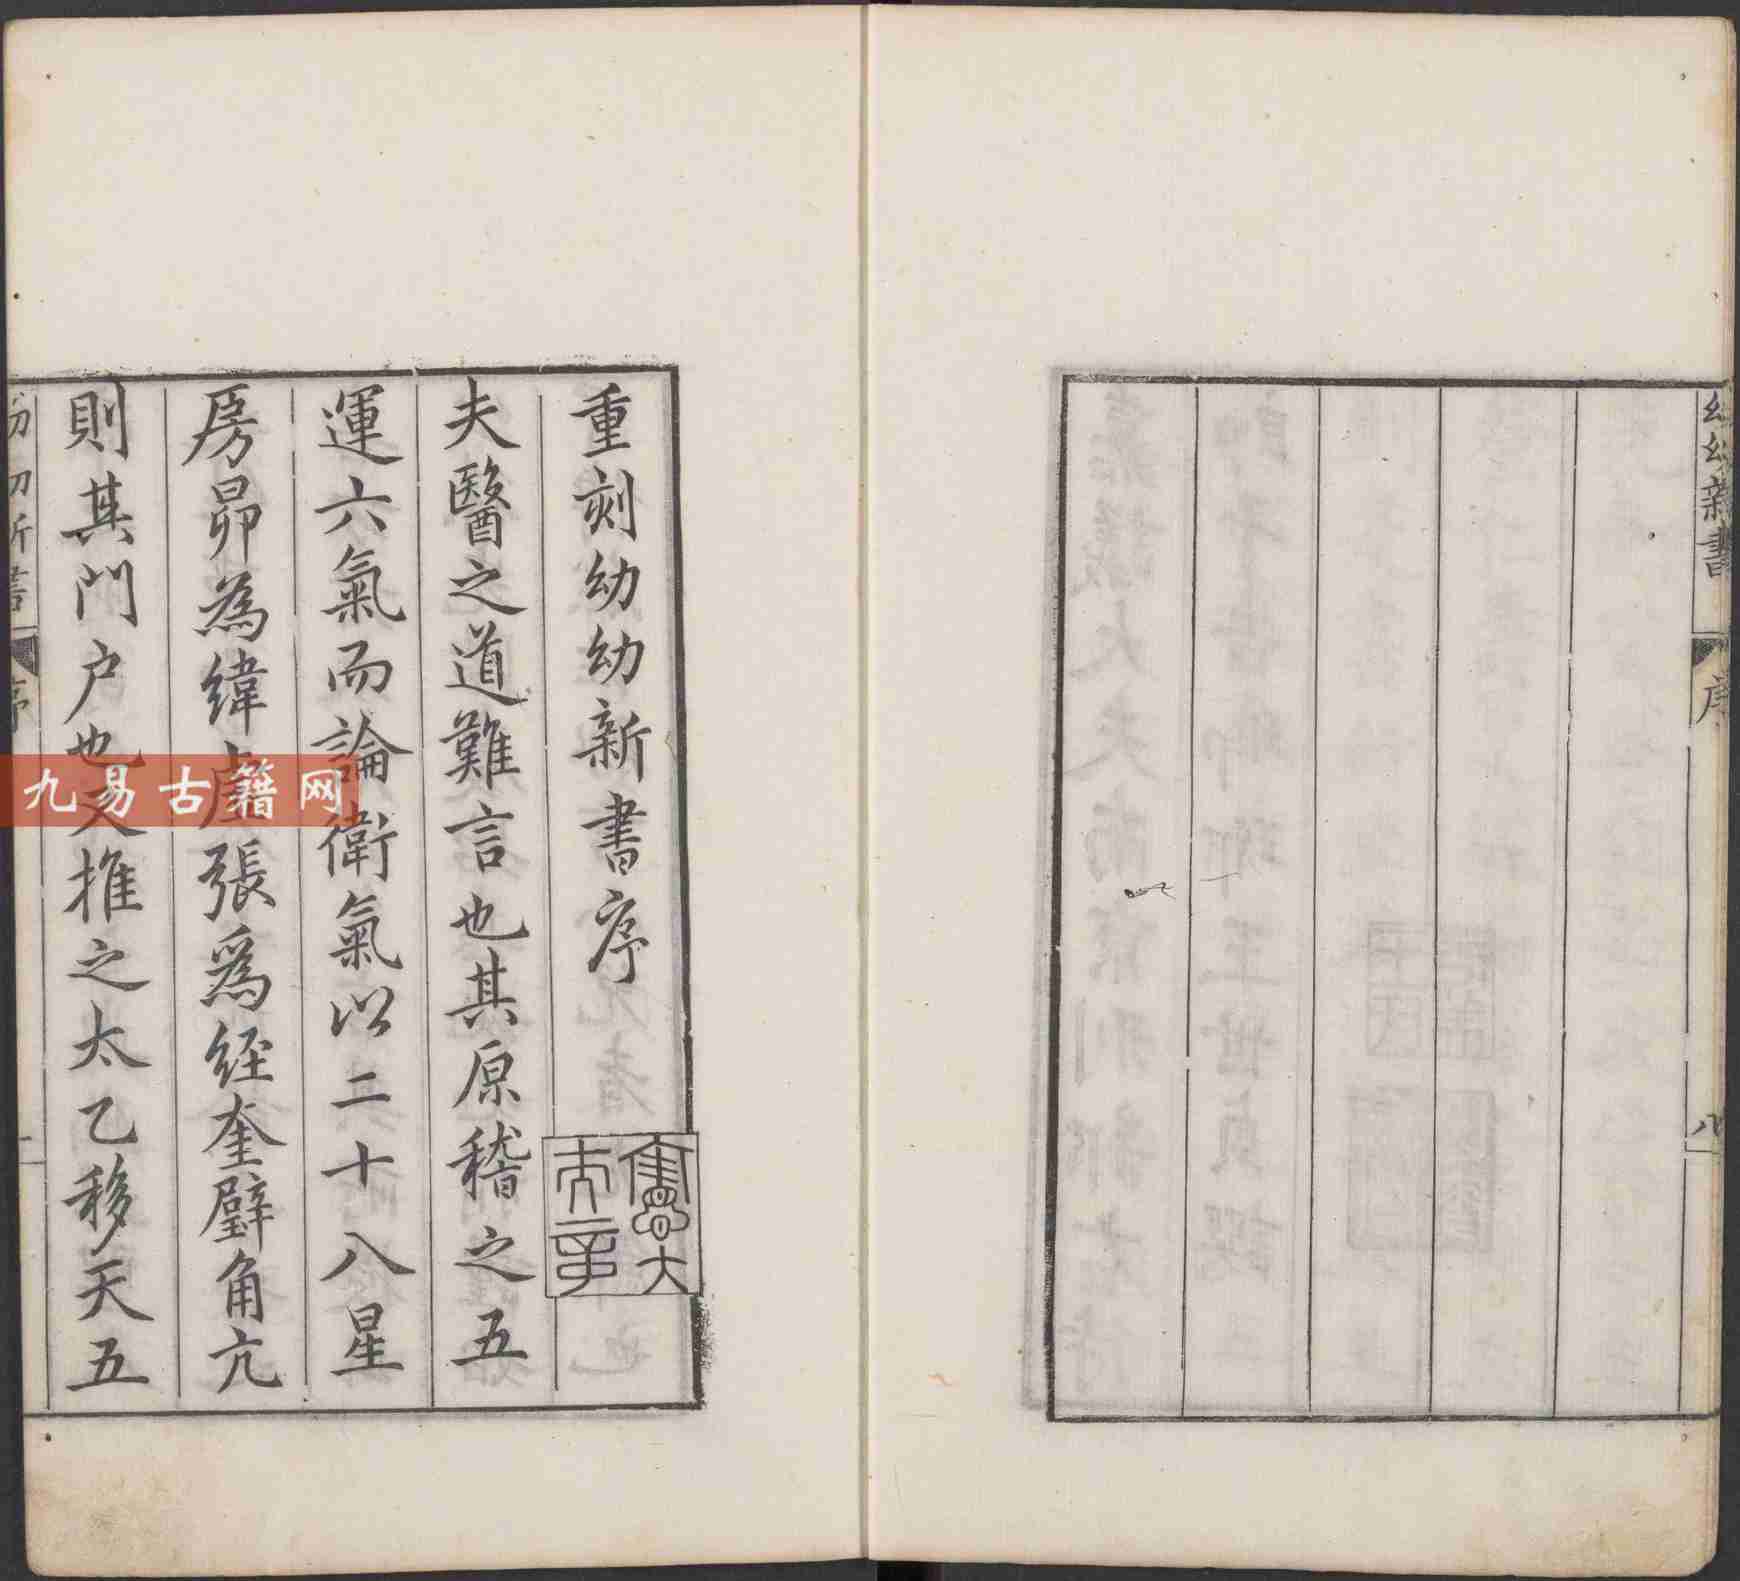 幼幼新書
序
八
重刻幼幼新書序
夫醫之道難言也其原稽之五
運六氣而論衛氣以二十八星
房昴為緯虛張爲經奎璧角亢
則其門户也又推之太乙移天五
九易古籍网